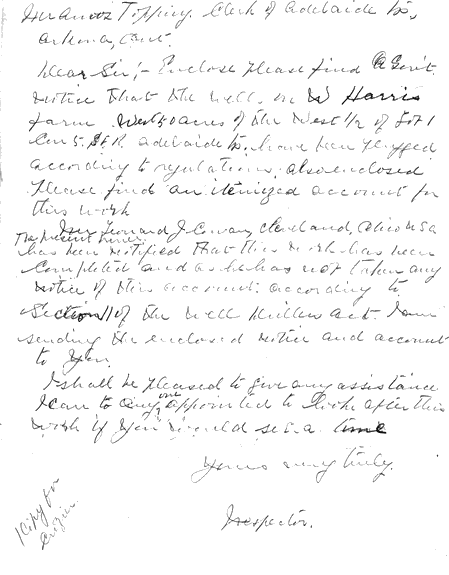 Topping. Clerk of Adelaide Tp,
Arkona, Ont.
Dear Sir;- Enclose Please find a Gov't
notice that the wells on W Harris
farm West 50 acres of the West 1/2 of Lot 1
Con 5. S.E.R. Adelaide tp. have been plugged
according to regulations. also enclosed
Please find an itemized account for
this work
Mr Leonard J. Cowan, Cleveland, Ohio USA
The Present owner.
has been notified that this work has been
Completed and as he has not taken any
notice of this account: according to
Section 11 of the Well Drillers act I am
sending the enclosed notice and account
to you.
I shall be pleased to give any assistance
I can to any one appointed to look after this
work if you would set a time
Yours very truly.
Inspector.
1 Copy for